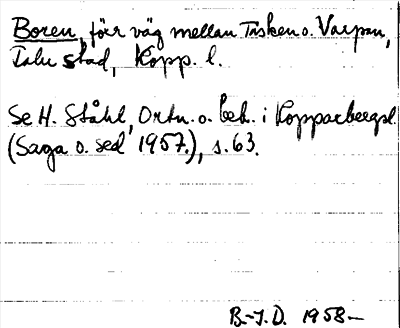 Boren, förr väg mellan Tisken o. Varpan,
Falu stad, Kopp. l.
Se H. Ståhl, Ortn. o. beb. i Kopparbergsl.
(Saga o. sed 1957.), s. 63.
B.-J.D. 1958–